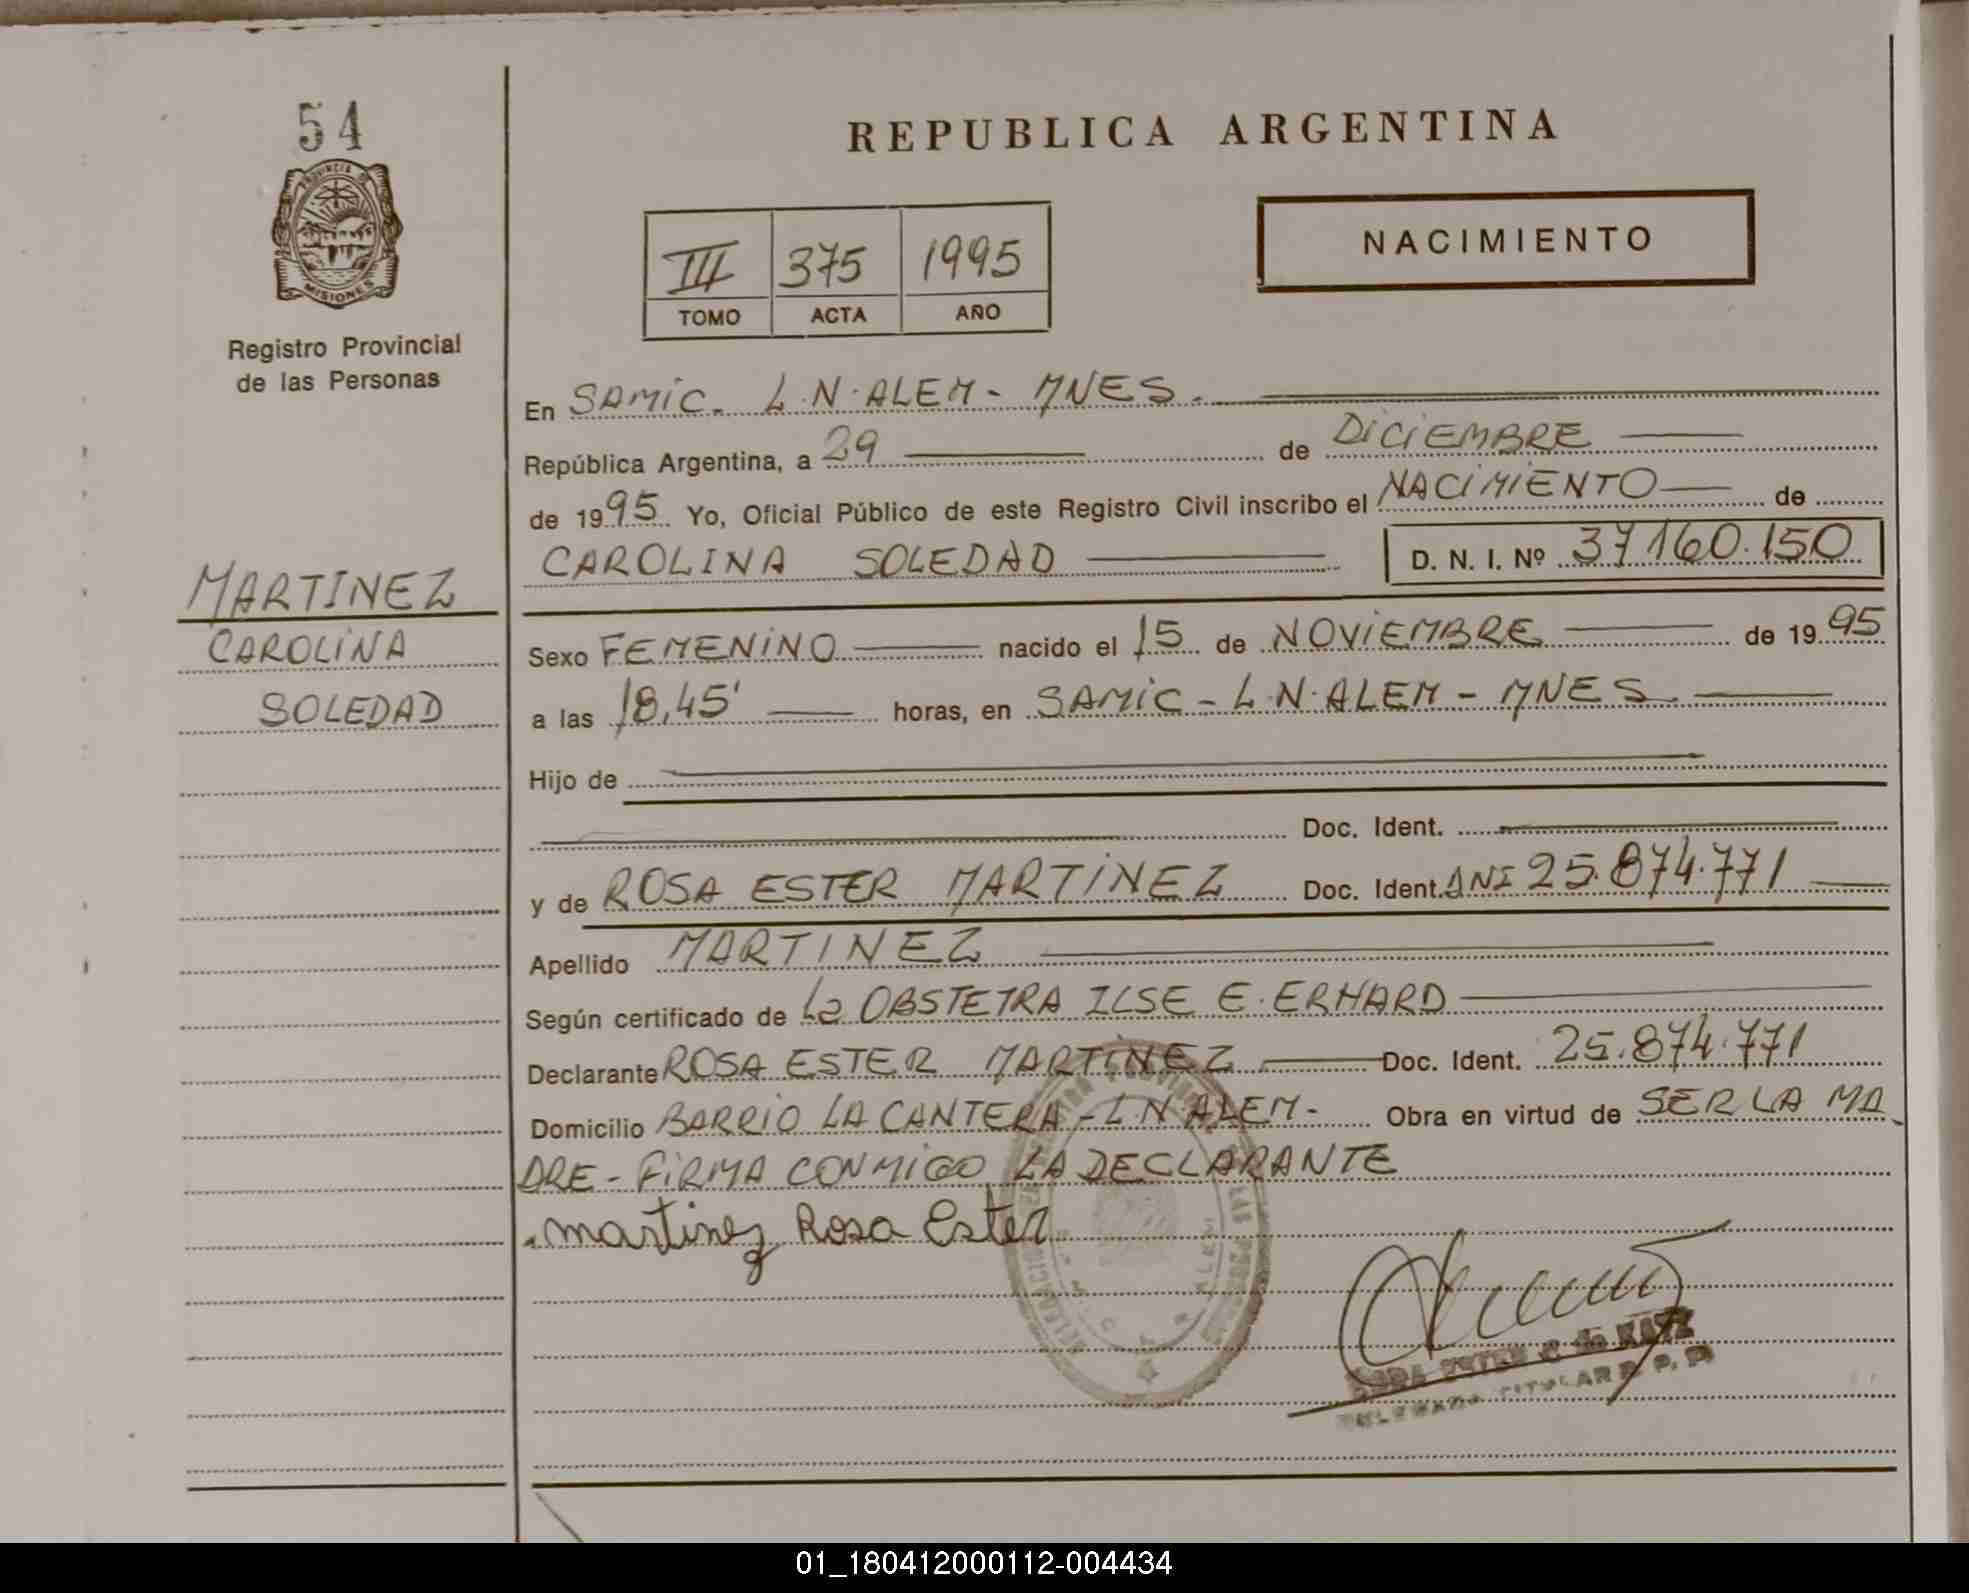 54
PROVINCIA DE
MISIONES
Registro Provincial
de las Personas
MARTINEZ
CAROLINA
SOLEDAD
REPUBLICA ARGENTINA
III 375 1995
TOMO ACTA AÑO
NACIMIENTO
En SAMIC. L.N. ALEM - MNES.
República Argentina, a 29 de DICIEMBRE
de 1995 Yo, Oficial Público de este Registro Civil inscribo el NACIMIENTO de
CAROLINA SOLEDAD D. N. I. Nº 37160.150
Sexo FEMENINO nacido el 15 de NOVIEMBRE de 1995
a las 18,45' horas, en SAMIC - L.N. ALEM - MNES.
Hijo de
Doc. Ident.
y de ROSA ESTER MARTINEZ Doc. Ident. DNI 25.874.771
Apellido MARTINEZ
Según certificado de La OBSTETRA ILSE E. ERHARD
Declarante ROSA ESTER MARTINEZ Doc. Ident. 25.874.771
Domicilio BARRIO LA CANTERA - L N ALEM - Obra en virtud de SER LA MA
DRE - FIRMA CONMIGO LA DECLARANTE
martinez Rosa Ester
C. de KATZ
TITULAR R. P. P.
01_180412000112-004434